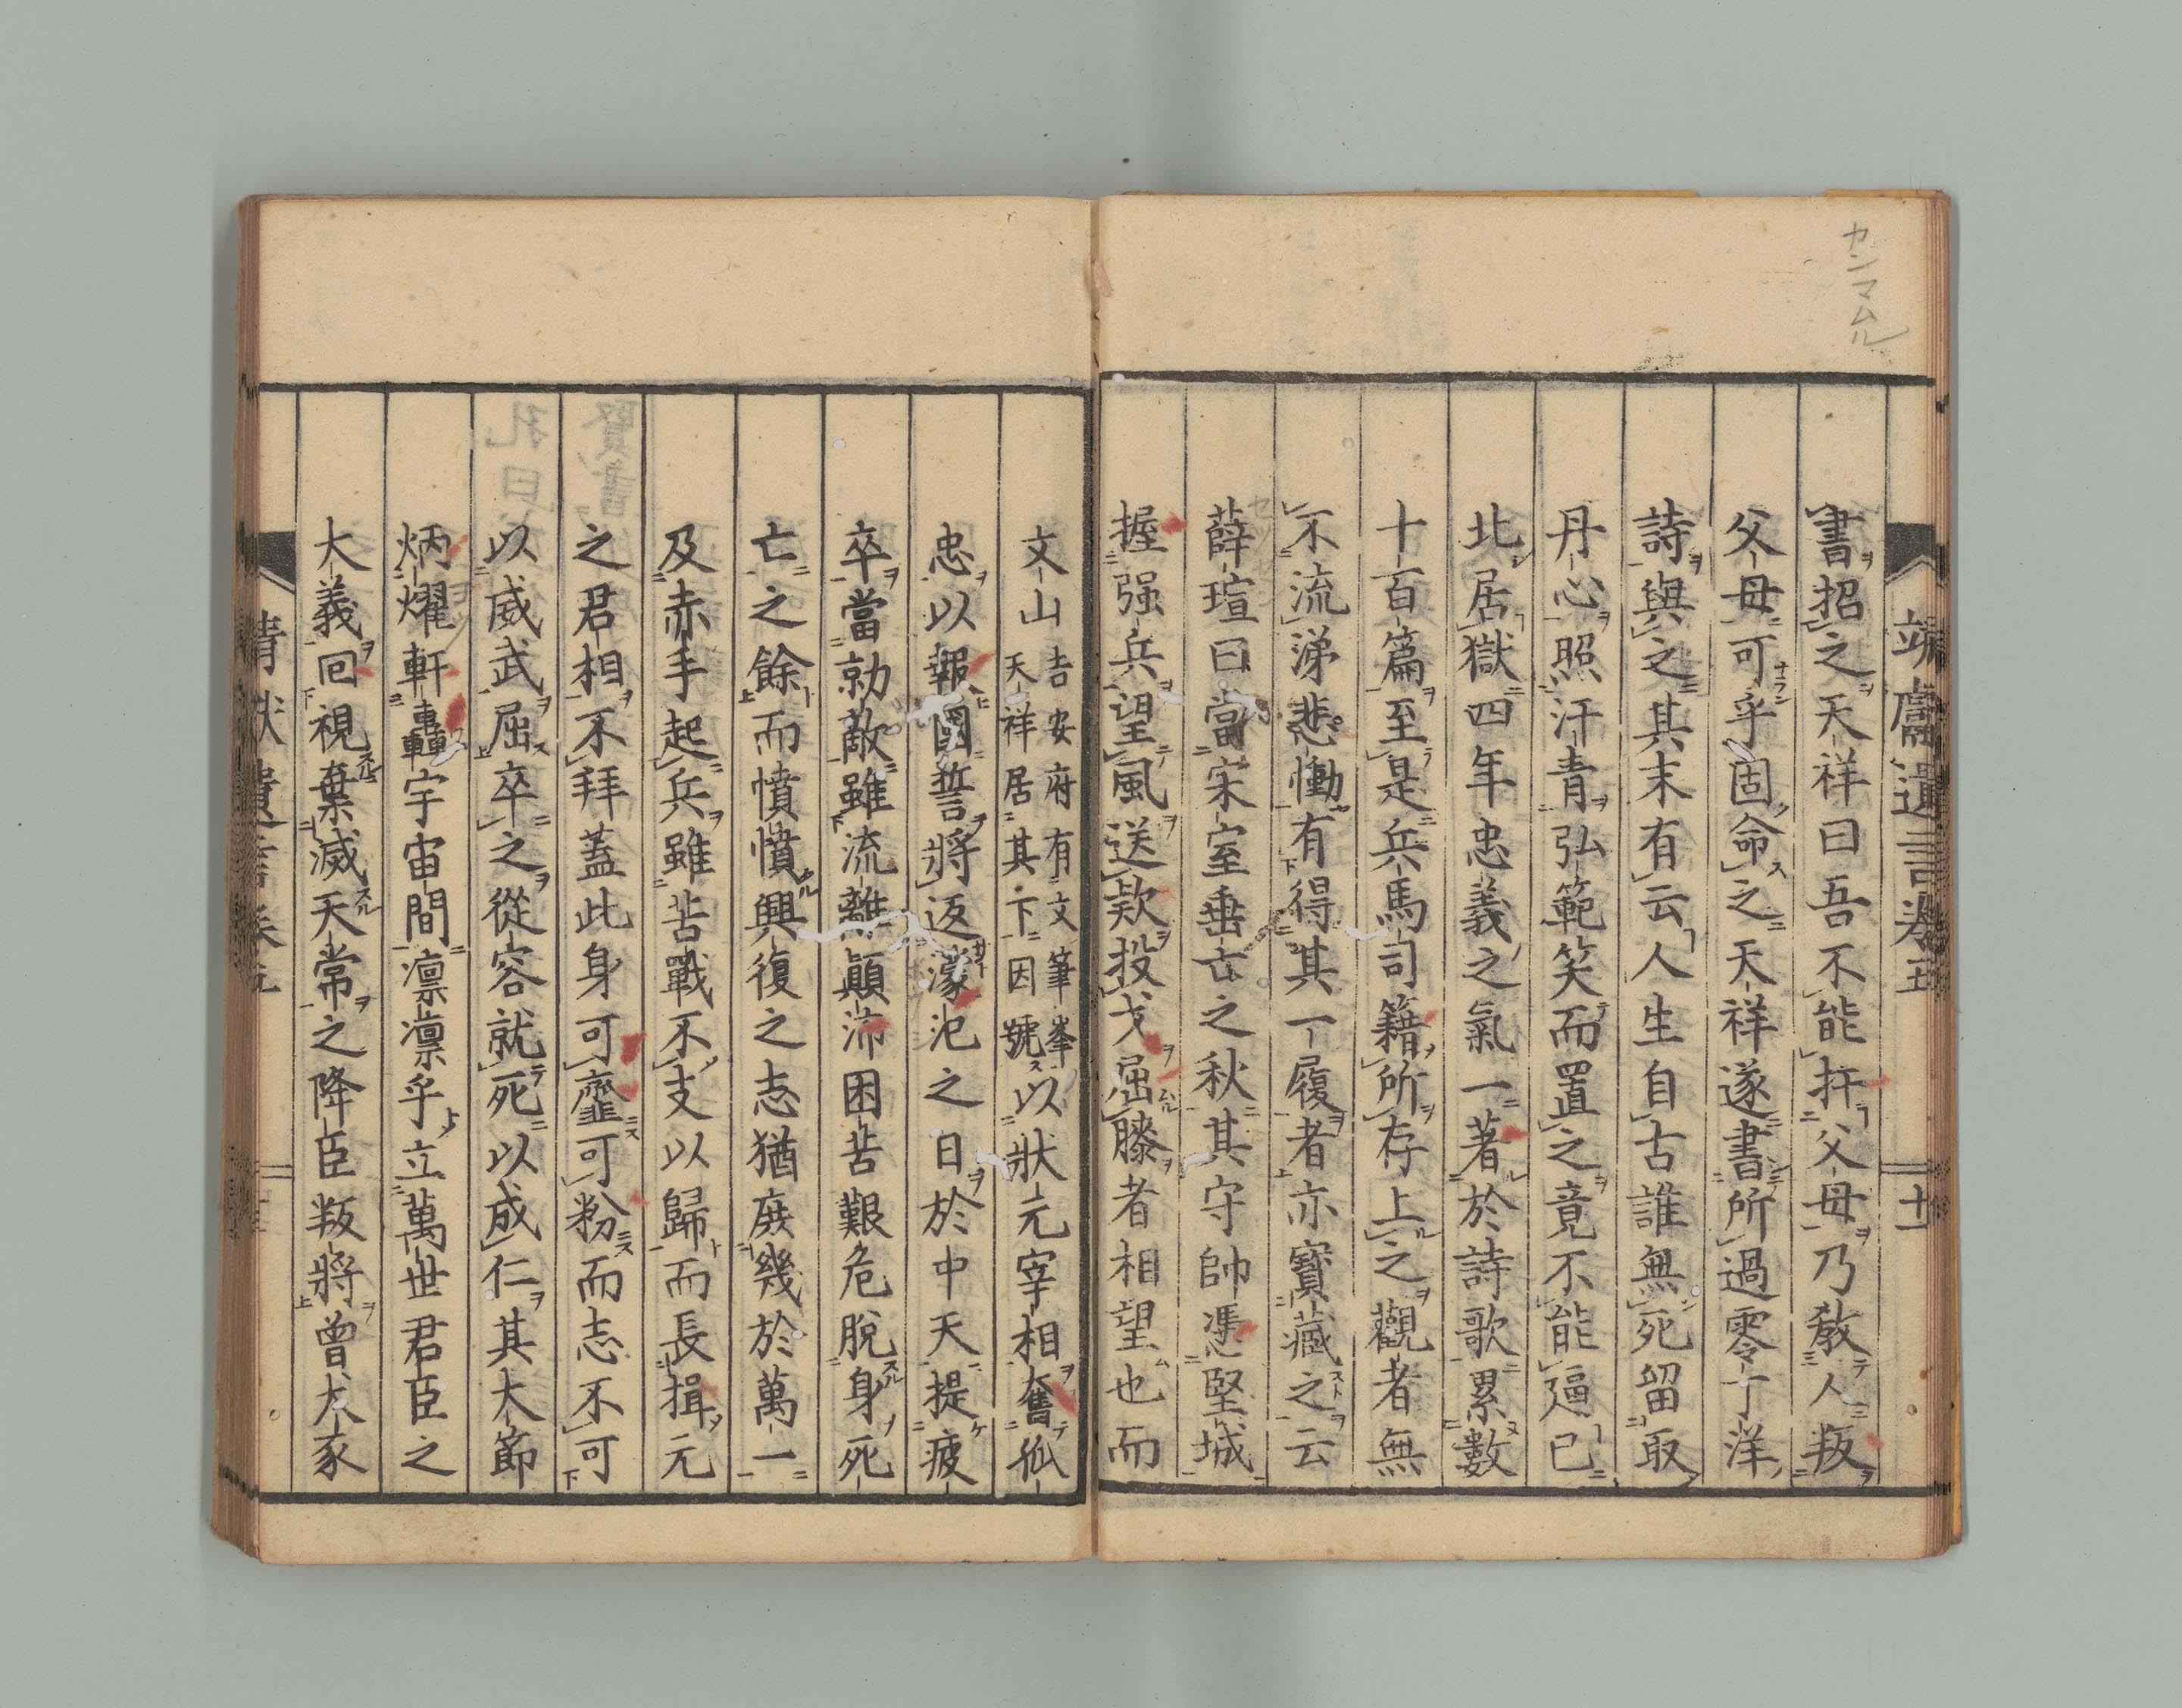 カンマムル
書招之天祥曰吾不能扞父母乃敎人叛
父母可乎固命之天祥遂書所過零丁洋
詩與之其末有云人生自古誰無死留取
丹心照汗青弘範笑而置之竟不能逼已
北居獄四年忠義之氣一著於詩歌累數
十百篇至是兵馬司籍所存上之觀者無
不流涕悲慟有得其一履者亦寶藏之云
薛瑄曰當宋室垂亡之秋其守帥憑堅城
握强兵望風送欵投戈屈膝者相望也而
文山吉安府有文筆峯天祥居其下因號以狀元宰相奮孤
忠以報國誓將返濛汜之日於中天提疲
卒當勍敵雖流離顚沛困苦艱危脫身死
亡之餘而憤憤興復之志猶庶幾於萬一
及赤手起兵雖苦戰不支以歸而長揖元
之君相不拜蓋此身可虀可粉而志不可
以威武屈卒之從容就死以成仁其大節
炳燿軒轟宇宙間凛凛乎立萬世君臣之
大義回視棄滅天常之降臣叛將曾犬豕